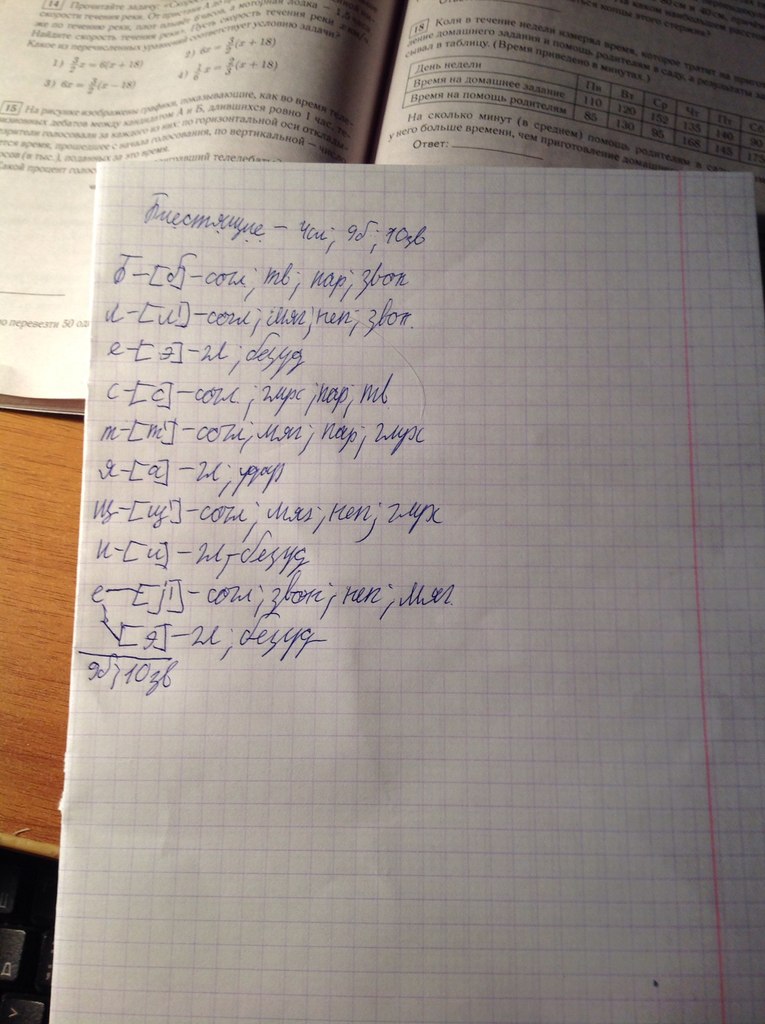 14 Прочитайте задачу: «Скорость
скорости течения реки. От пристани А до
же по течению реки, плот плывёт 6 часов, а моторная лодка – 1,5 часа.
Найдите скорость течения реки». Пусть скорость течения реки x км/ч.
Какое из перечисленных уравнений соответствует условию задачи?
1) 3/2 x = 6(x + 18)
2) 6x = 3/2 (x + 18)
3) 6x = 3/2 (x − 18)
15 На рисунке изображены графики, показывающие, как во время теле-
визионных дебатов между кандидатами А и Б, длившихся ровно 1 час, те-
лезрители голосовали за каждого из них: по горизонтальной оси отклады-
вается время, прошедшее с начала голосования, по вертикальной — число
голосов (в тыс.), поданных за это время.
Какой процент
перевезти 50
Ответ:
18 Коля в течение недели измерял время, которое тратит на приготов-
ление домашнего задания и помощь родителям в саду, а результаты за-
сывал в таблицу. (Время приведено в минутах.)
День недели Пн Вт Ср Чт Пт Сб
Время на домашнее задание 110 120 152 135 146 90
Время на помощь родителям 85 130 95 168 148 175
На сколько минут (в среднем) помощь родителям в саду
у него больше времени, чем приготовление домашнего
Ответ:
Блестящие – 4сл; 9б; 10зв
Б – [б] – согл; тв; пар; звон
л – [л'] – согл; мяг; неп; звон.
е – [э] – гл; безуд
с – [с] – согл; глух; пар; тв
т – [т'] – согл; мяг; пар; глух
я – [а] – гл; удар
щ – [щ'] – согл; мяг; неп; глух
и – [и] – гл; безуд
е – [j'] – согл; звон; неп; мяг.
[э] – гл; безуд
9б; 10зв